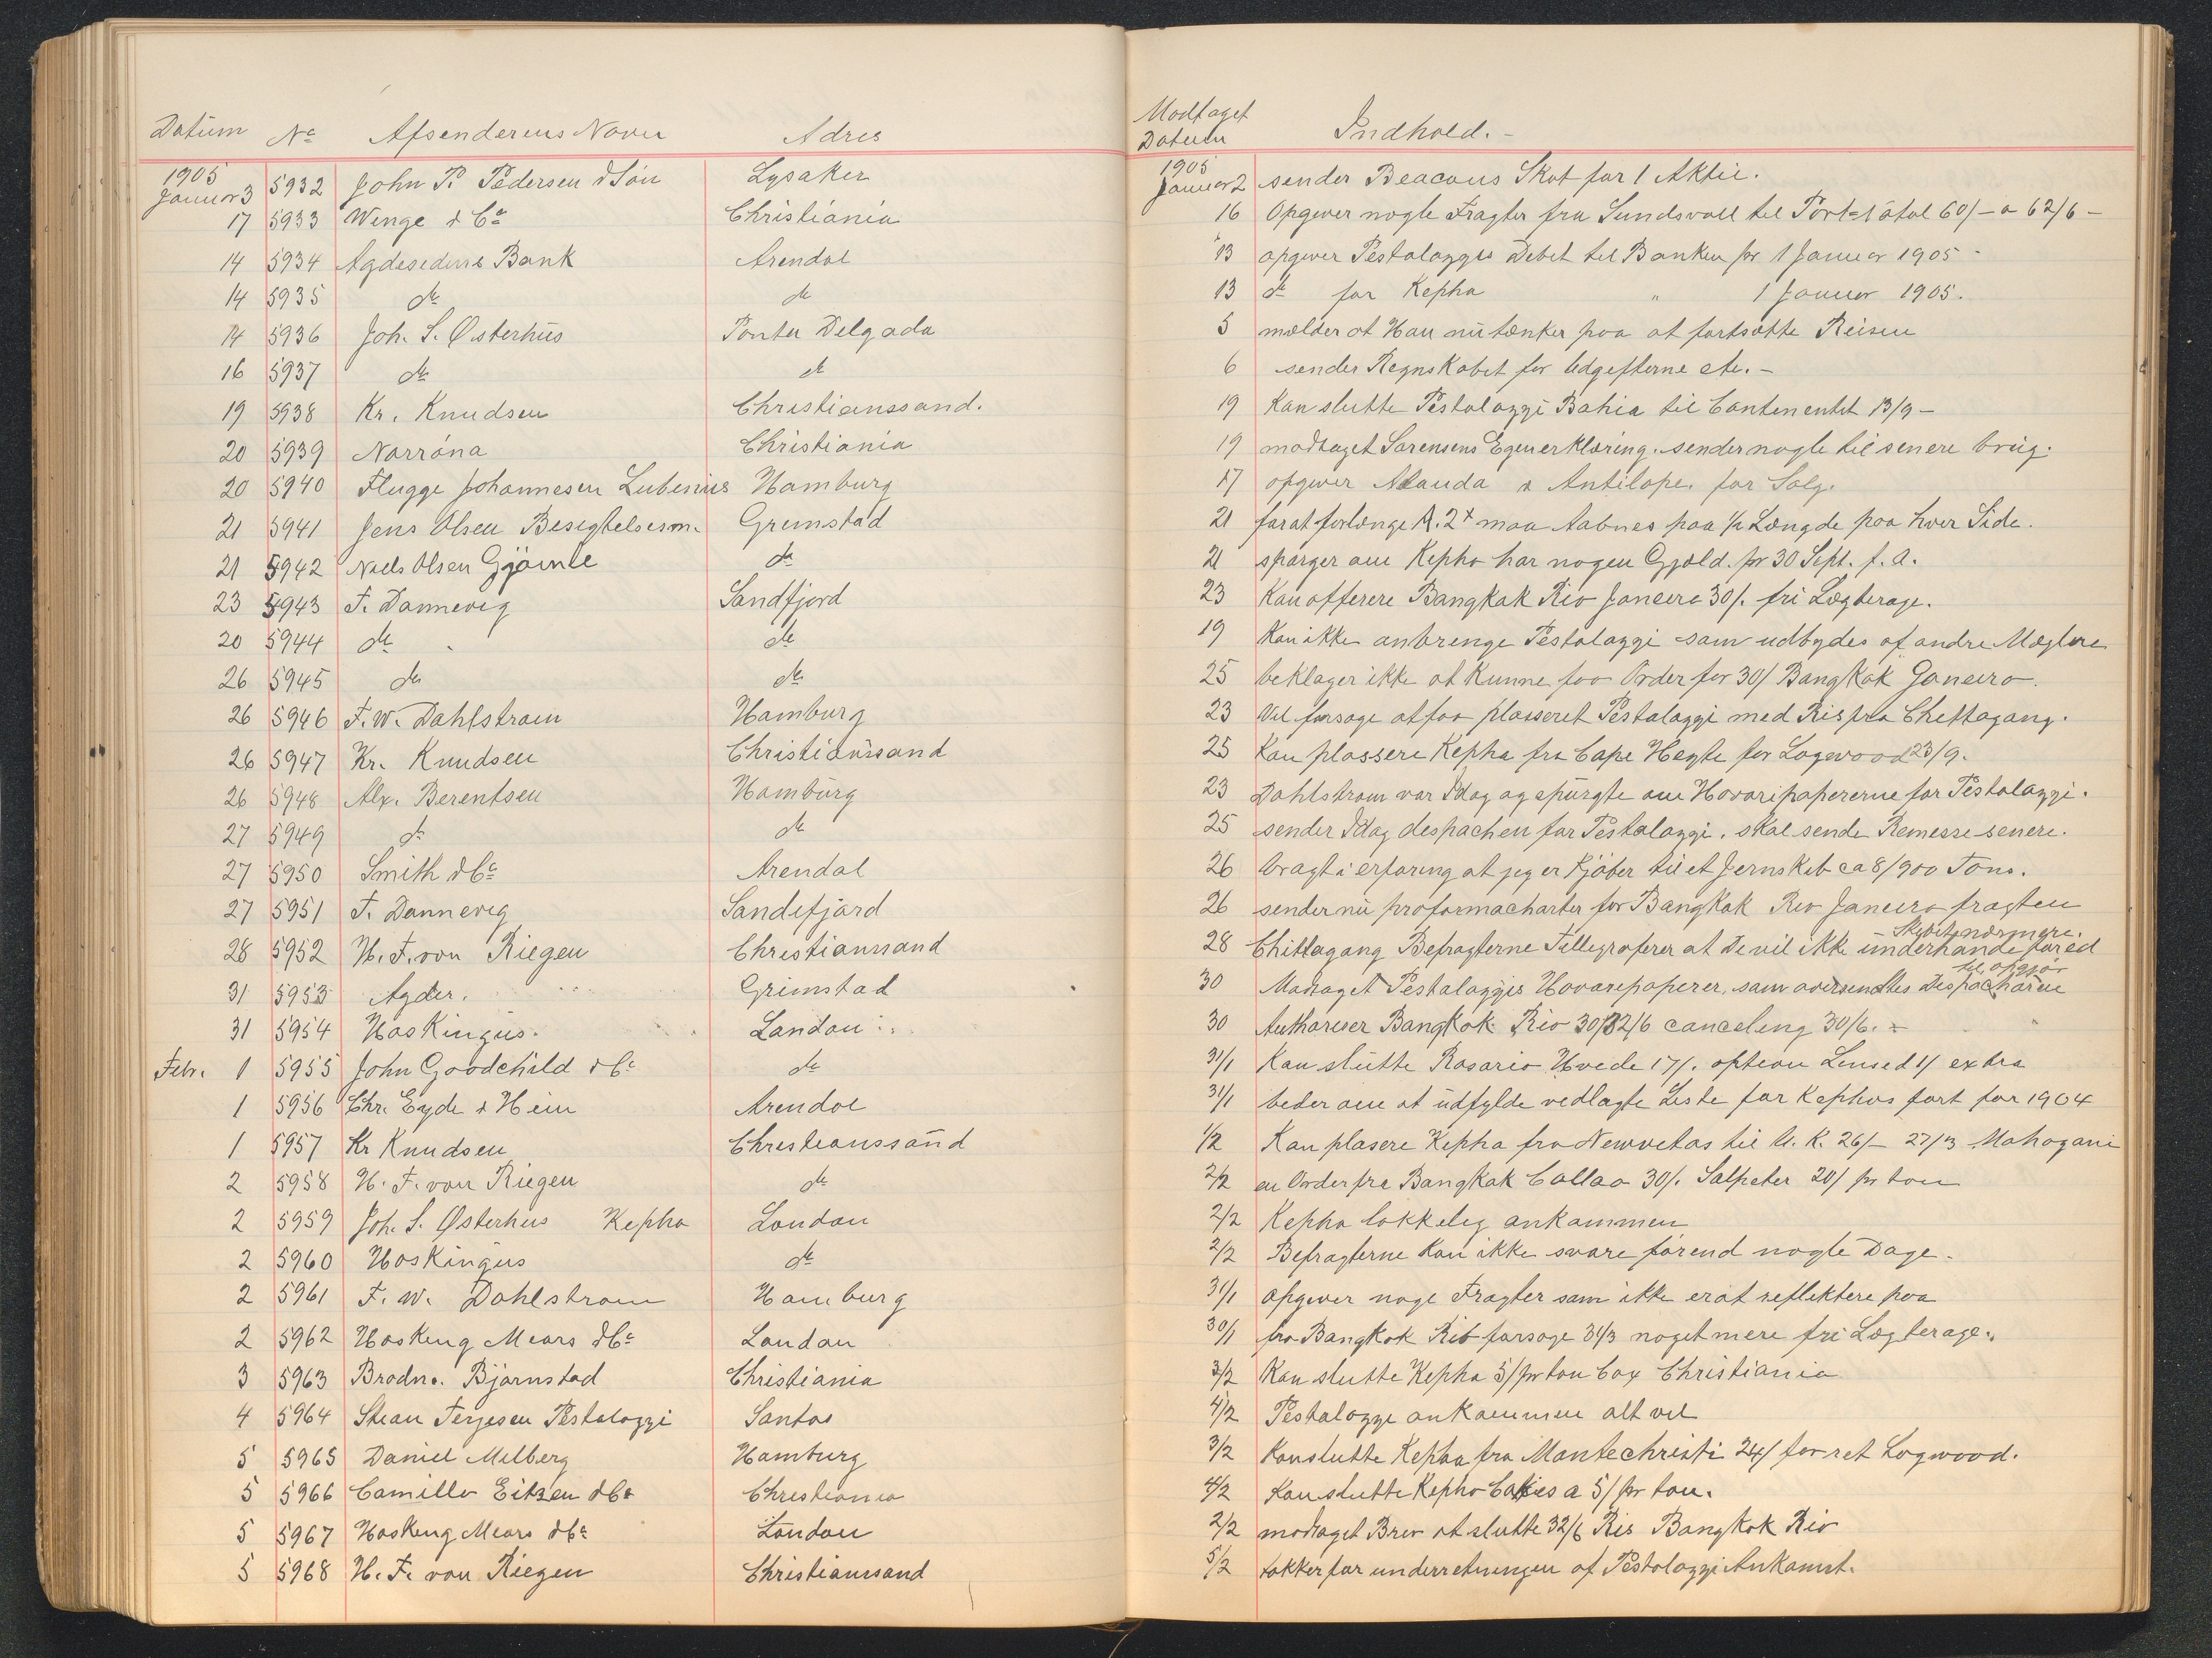 Datum No Afsenderens Navn Adres
1905
Januar 3 5932 John P. Pedersen & Sön Lysaker
17 5933 Wenge & Co Christiania
14 5934 Agdesidens Bank Arendal
14 5935 do do
14 5936 Joh. S. Østerhus Ponta Delgada
16 5937 do do
19 5938 Kr. Knudsen Christianssand.
20 5939 Norröna Christiania
20 5940 Flugge Johannesen Lubenius Hamburg
21 5941 Jens Olsen Besigtelsesm. Grimstad
21 5942 Niels Olsen Gjömle do
23 5943 F. Dannevig Sandfjord
20 5944 do do
26 5945 do do
26 5946 F. W. Dahlstrom Hamburg
26 5947 Kr. Knudsen Christianssand
26 5948 Alx. Berentsen Hamburg
27 5949 do do
27 5950 Smith & Co Arendal
27 5951 F. Dannevig Sandefjord
28 5952 H. F. von Riegen Christianssand
31 5953 Agder. Grimstad
31 5954 Hoskingus. London
Febr. 1 5955 John Goodchild & Co do
1 5956 Chr. Eyde & Hein Arendal
1 5957 Kr Knudsen Christianssand
2 5958 H. F. von Riegen do
2 5959 Joh. S. Østerhus Kepha London
2 5960 Hoskingus do
2 5961 F. W. Dahlstrom Hamburg
2 5962 Hosking Mears & Co London
3 5963 Brodn. Bjørnstad Christiania
4 5964 Stean Terjesen Pestalozzi Santos
5 5965 Daniel Milberg Hamburg
5 5966 Camillo Eitzen & Co Christiania
5 5967 Hosking Mears & Co London
5 5968 H. F. von Riegen Christianssand
Modtaget
Datum Indhold.-
1905
Januar 2 sender Beacons Skat for 1 Aktie.
16 Opgiver nogle Fragter fra Sundsvall til Port Natal 60/- a 62/6 -
13 opgiver Pestalozzis Debet til Banken pr 1 Januar 1905 -
13 do for Kepha " 1 Januar 1905.
5 mælder at Han nu tænker paa at fortsætte Reisen
6 sender Regnskabet for Udgifterne etc. -
19 Kan slutte Pestalozzi Bahia til Contenentet 13/9 -
19 modtaget Sørensens Egenerklæring. sender nogle til senere brug.
17 opgiver Alauda & Antilope for Salg.
21 for at forlænge A. 2+ maa Aabnes paa 1/2 Længde paa hver Side.
21 spörger om Kepha har nogen Gjæld. pr 30 Sept. f. a.
23 Kan offerere Bangkak Rio Janeiro 30/. fri Lægterage.
19 Kan ikke anbrenge Pestalozzi som udbydes af andre Mæglere
25 beklager ikke at kunne faa Order for 30/ Bangkok Janeiro.
23 Vil forsøge at faa plasseret Pestalozzi med Ris fra Chettagang.
25 Kan plassere Kepha fra Cape Hayte for Logwood 23/9.
23 Dahlstrom var Idag og spurgte om Havaripapererne for Pestalozzi.
25 sender Idag despachen for Pestalozzi. skal sende Remesse senere.
26 bragt i erfaring at jeg er Kjöber til et Jernskib ca 8/900 Tons.
26 sender nu proformacharter for Bangkok Rio Janeiro fragten
28 Chittagang Befragterne Tillegraferer at De vil ikke underhandle förend Skibet nærmere.
30 Modtaget Pestalozzis Havarepaperer, som oversendtes Despachören til opgjör
30 Authoriser Bangkok Rio 30/32/6 canceling 30/6. -
31/1 Kan slutte Rosario Hvede 17/. option Linsed 1/ extra
31/1 beder om at udfylde vedlagte Liste for Kephas fart for 1904
1/2 Kan plasere Kepha fra Newvetas til U. K. 26/- 27/3 Mahogani
2/2 en Order fra Bangkok Callao 30/. Salpeter 20/ pr ton
2/2 Kepha lokkelig ankommen
2/2 Befragterne kan ikke svare förend nogle Dage.
31/1 Opgiver noge Fragter som ikke er at reflektere paa
30/1 fra Bangkok Rio forsøge 31/3 noget mere fri Lægterage.
3/2 Kan slutte Kepha 5/ pr ton Cax Christiania
4/2 Pestalozzi ankommen alt vel
3/2 Kan slutte Kepha fra Montechristi 24/ for ret Logwood.
4/2 Kan slutte Kepha a 5/ pr ton.
2/2 modtaget Brev at slutte 32/6 Ris Bangkok Rio
5/2 takker for underretningen af Pestalozzi Ankomst.